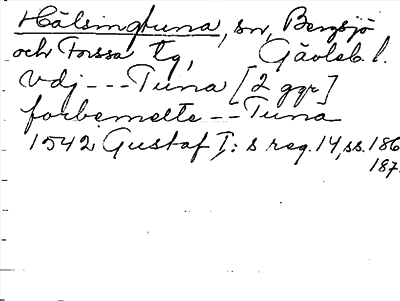 Hälsingtuna, sn, Bergsjö
och Forssa tg, Gävleb. l.
Vdj --- Tuna [2 ggr]
forbemelte -- Tuna
1542 Gustaf I: s reg. 14, ss. 186
187.